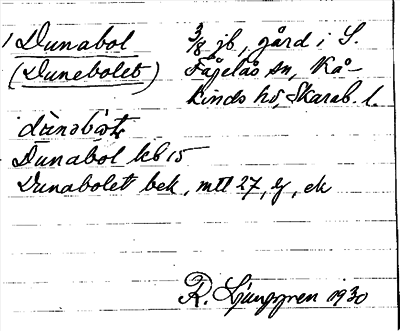 1 Dunabol 3/8 jb., gård i S.
(Dunebolet) Fågelås sn, Kå-
kinds hd, Skarab. l.
Dunabol kb 15
Dunabolet bek, mtl 27, Lg, ek
R. Ljunggren 1930